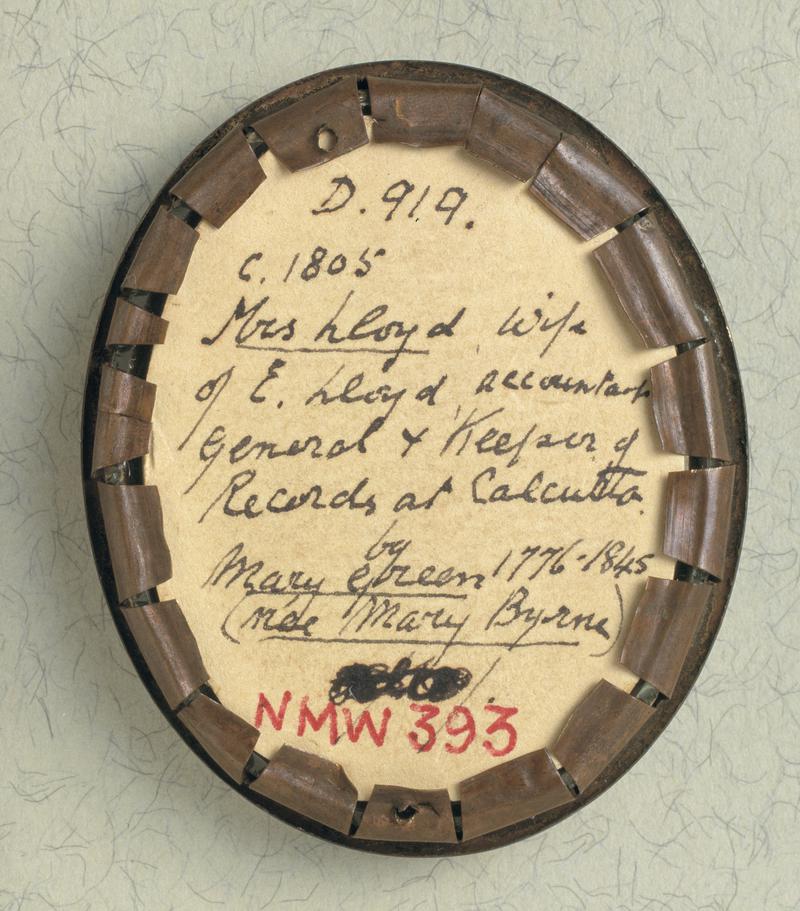 D.919.
c. 1805
Mrs Lloyd, wife
of E. Lloyd, accountant
General & Keeper of
Records at Calcutta.
by
Mary Green 1776-1845
(née Mary Byrne)
NMW 393